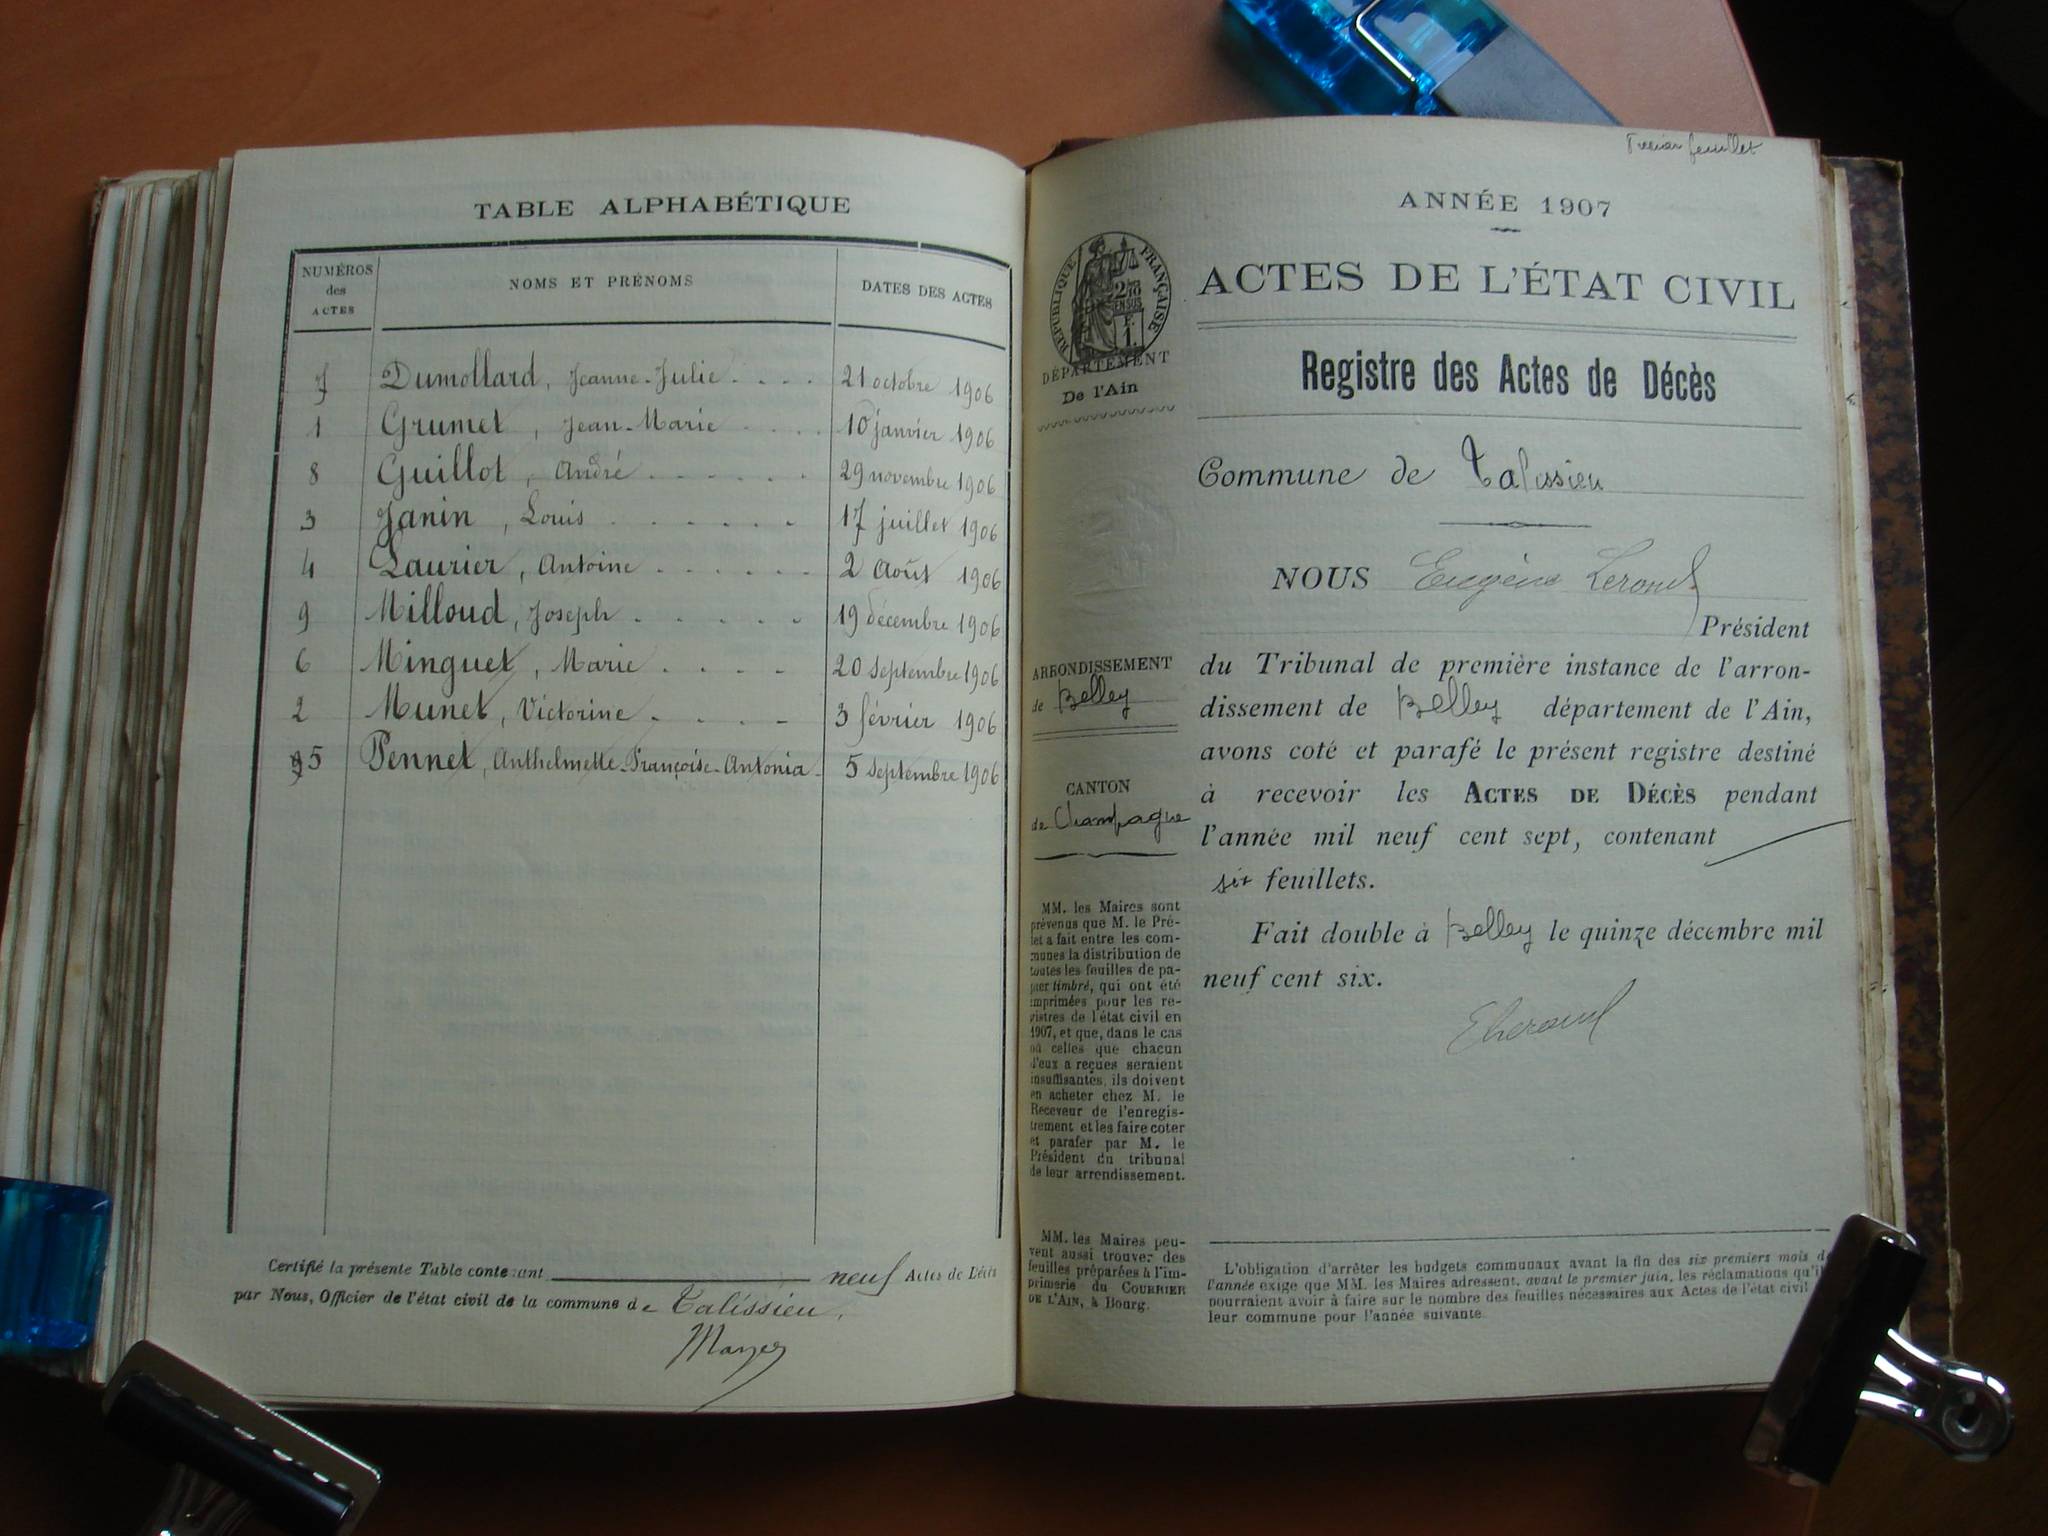 TABLE ALPHABÉTIQUE
NUMÉROS
des
ACTES
NOMS ET PRÉNOMS
DATES DES ACTES
7 Dumollard, Jeanne-Julie 21 octobre 1906
1 Grumet, Jean-Marie 10 janvier 1906
8 Guillot, André 29 novembre 1906
3 Janin, Louis 17 juillet 1906
4 Laurier, Antoine 2 Août 1906
9 Milloud, Joseph 19 décembre 1906
6 Minguet, Marie 20 septembre 1906
2 Munet, Victorine 3 février 1906
5 Pennet, Anthelmette-Françoise-Antonia 5 septembre 1906
Certifié la présente Table contenant neuf Actes de Décès
par Nous, Officier de l'état civil de la commune de Talissieu,
feuillet
ANNÉE 1907
ACTES DE L'ÉTAT CIVIL
RÉPUBLIQUE FRANÇAISE
DÉPARTEMENT
De l'Ain
Registre des Actes de Décès
Commune de Talissieu
NOUS Eugène
Président
ARRONDISSEMENT
de Belley
du Tribunal de première instance de l'arron-
dissement de Belley département de l'Ain,
avons coté et parafé le présent registre destiné
à recevoir les ACTES DE DÉCÈS pendant
l'année mil neuf cent sept, contenant
six feuillets.
CANTON
de Champagne
Fait double à Belley le quinze décembre mil
neuf cent six.
MM. les Maires sont
prévenus que M. le Pré-
fet a fait entre les com-
munes la distribution de
toutes les feuilles de pa-
pier timbré, qui ont été
imprimées pour les re-
gistres de l'état civil en
1907, et que, dans le cas
où celles que chacun
d'eux a reçues seraient
insuffisantes, ils doivent
en acheter chez M. le
Receveur de l'enregis-
trement et les faire coter
et parafer par M. le
Président du tribunal
de leur arrondissement.
MM. les Maires peu-
vent aussi trouver des
feuilles préparées à l'im-
primerie du COURRIER
DE L'AIN, à Bourg.
L'obligation d'arrêter les budgets communaux avant la fin des six premiers mois de
l'année exige que MM. les Maires adressent, avant le premier juin, les réclamations qu'il
pourraient avoir à faire sur le nombre des feuilles nécessaires aux Actes de l'état civil
leur commune pour l'année suivante.